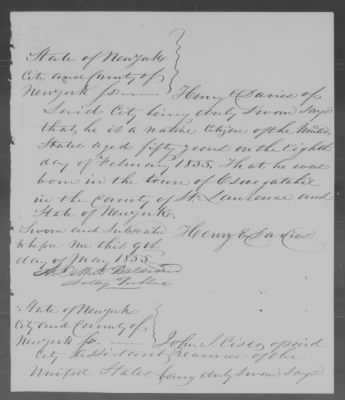 State of New York
City and County of
New York ss.
Henry E Davies of
Said City being duly Sworn Says
that he is a native Citizen of the United
States aged fifty years on the eighth
day of February 1855. That he was
born in the town of Oswegatchie
in the County of St. Lawrence and
State of New York.
Sworn and Subscribed
before me this 9th
day of May 1855
Henry E Davies
Notary Public
State of New York
City and County of
New York ss.
John J. Cisco of said
City Assistant Treasurer of the
United States being duly Sworn Says